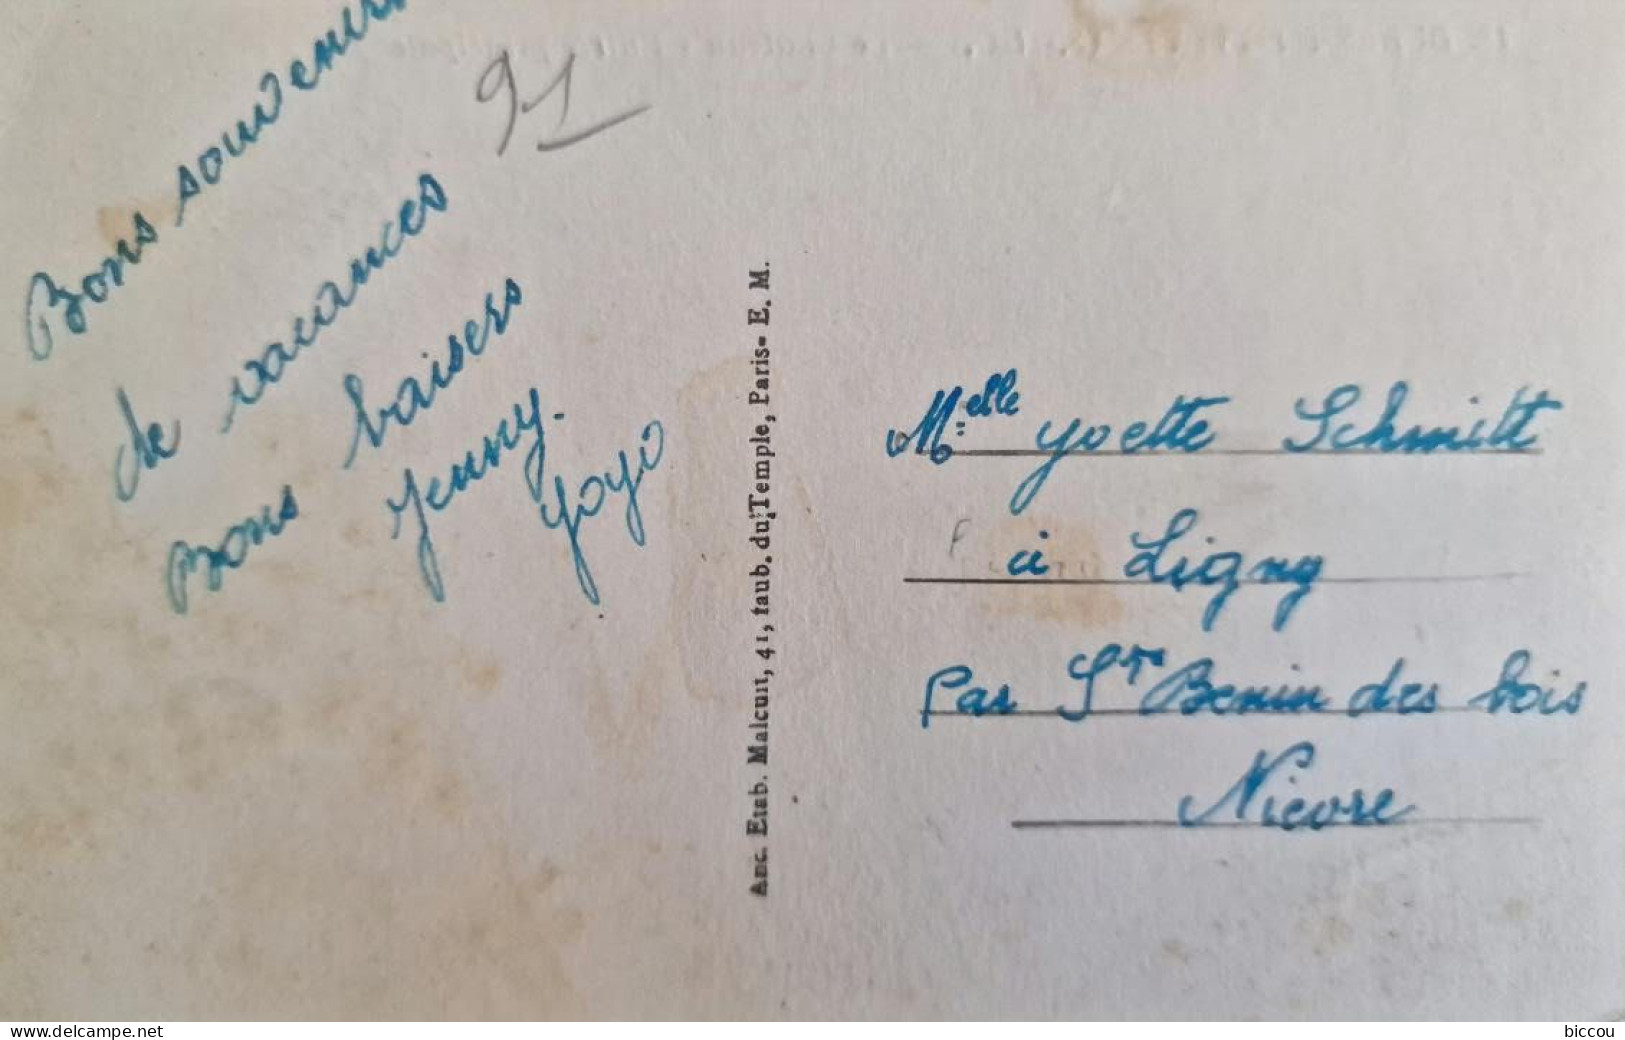 Bons souvenirs
de vacances
Bons baisers
Jenny.
Yoyo
91
Anc. Etab. Malcuit, 41, faub. du Temple, Paris- E. M.
Melle Yvette Schmitt
à Ligny
Par St Benin des bois
Nièvre
www.delcampe.net
biccou